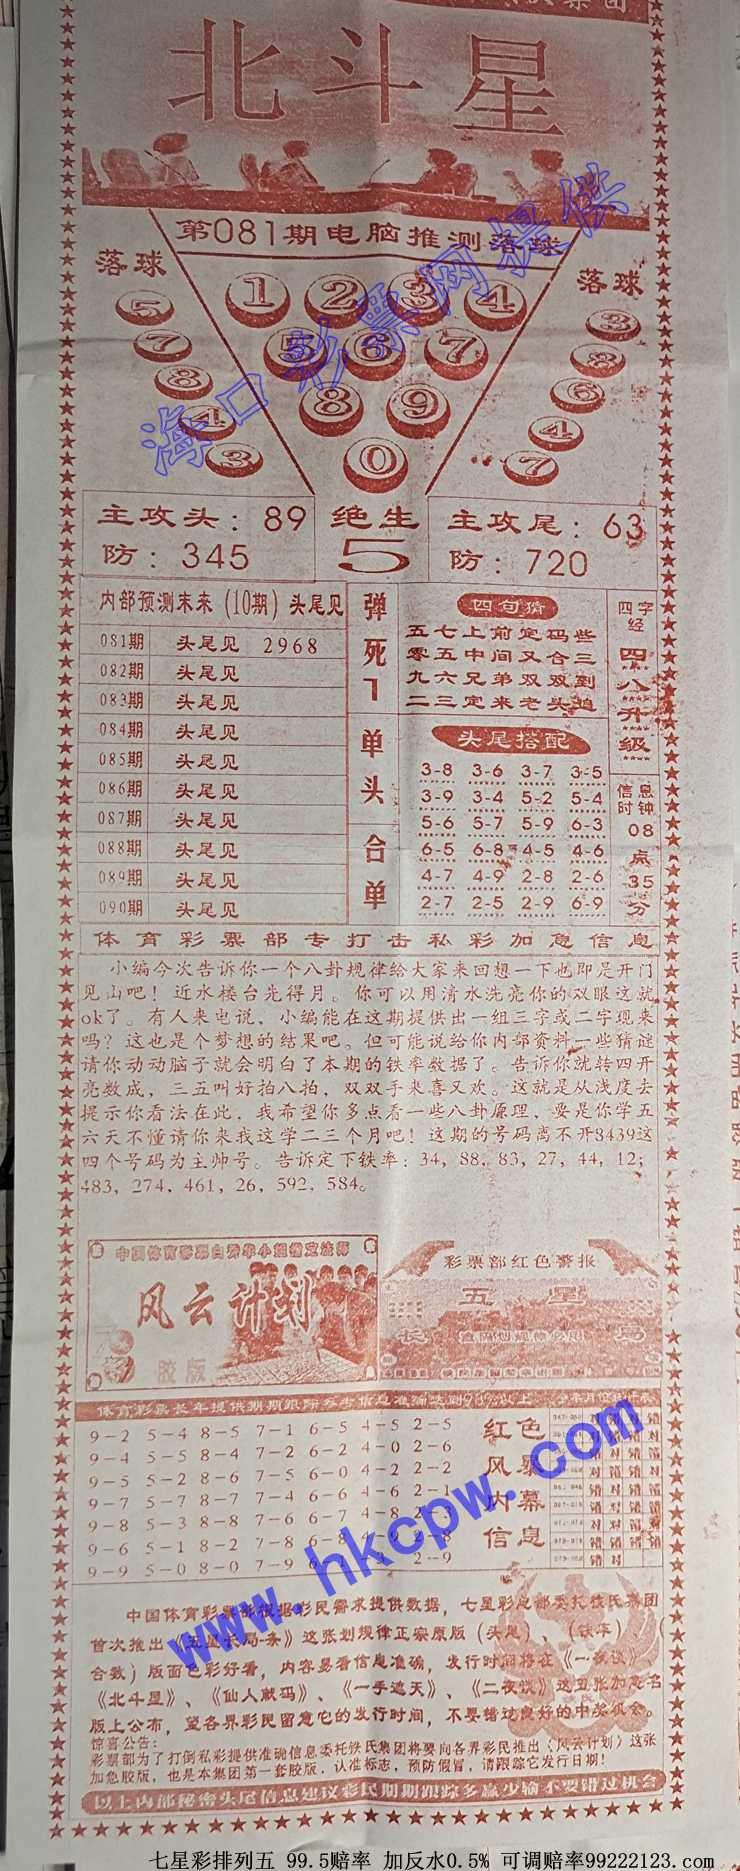 北斗星
第081期电脑推测落球
落球
落球
5
7
8
4
3
1 2 3 4
5 6 7
8 9
0
3
8
6
4
7
主攻头：89
防：345
绝生
5
主攻尾：63
防：720
内部预测末来(10期)头尾见
081期 头尾见 2968
082期 头尾见
083期 头尾见
084期 头尾见
085期 头尾见
086期 头尾见
087期 头尾见
088期 头尾见
089期 头尾见
090期 头尾见
弹死1
单头
合单
四句猜
五七上前定码些
零五中间又合三
九六兄弟双双到
二三定来老头追
头尾搭配
3-8 3-6 3-7 3-5
3-9 3-4 5-2 5-4
5-6 5-7 5-9 6-3
6-5 6-8 4-5 4-6
4-7 4-9 2-8 2-6
2-7 2-5 2-9 6-9
四字经
四八升级
信息时钟
08
点
35
分
体育彩票部专打击私彩加急信息
小编今次告诉你一个八卦规律给大家来回想一下也即是开门
见山吧！近水楼台先得月。你可以用清水洗亮你的双眼这就
ok了。有人来电说，小编能在这期提供出一组三字或二字现来
吗？这也是个梦想的结果吧。但可能说给你内部资料一些猜谜
请你动动脑子就会明白了本期的铁率数据了。告诉你就转四开
亮数成，三五叫好拍八拍，双双手来喜又欢。这就是从浅度去
提示你看法在此，我希望你多点看一些八卦原理、要是你学五
六天不懂请你来我这学二三个月吧！这期的号码离不开8439这
四个号码为主帅号。告诉定下铁率：34，88，83，27，44，12；
483，274，461，26，592，584。
风云计划
胶版
彩票部红色警报
五星
长局
9-2 5-4 8-5 7-1 6-5 4-5 2-5
9-4 5-5 8-4 7-2 6-2 4-0 2-6
9-5 5-2 8-6 7-5 6-0 4-2 2-2
9-7 5-7 8-7 7-4 6-6 4-6 2-1
9-8 5-3 8-8 7-6 6-7 4-8
9-6 5-1 8-2 7-8 6-8
9-9 5-0 8-0 7-9 2-9
红色
风暴
内幕
信息
中国体育彩票部根据彩民需求提供数据，七星彩总部委托铁氏集团
首次推出《五星长局-条》这张划规律正宗原版（头尾）、（铁率）（
合数）版面色彩好看，内容易看信息准确，发行时间将在《一夜谈》
《北斗星》、《仙人献码》、《一手遮天》、《二夜谈》这五张加急名
版上公布，望各界彩民留意它的发行时间，不要错过良好的中奖机会。
惊喜公告：
彩票部为了打倒私彩提供准确信息委托铁氏集团将要向各界彩民推出《风云计划》这张
加急胶版，也是本集团第一套胶版，认准标志，预防假冒，请跟踪它发行日期！
以上内部秘密头尾信息建议彩民期期跟踪多赢少输不要错过机会
海口彩票网提供
www.hkcpw.com
七星彩排列五 99.5赔率 加反水0.5% 可调赔率99222123.com